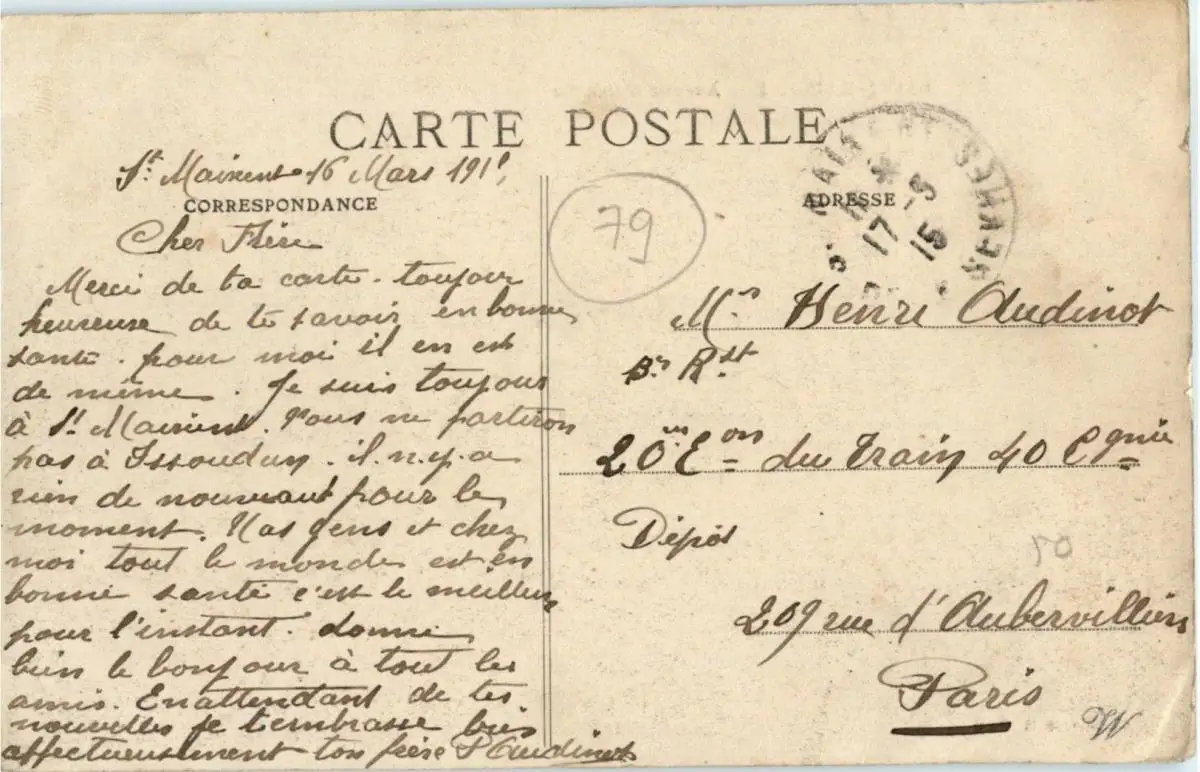 CARTE POSTALE
St Maixent 16 Mars 191
CORRESPONDANCE
ADRESSE
17 -3
15
79
Cher Frère
Merci de ta carte. toujours
heureuse de te savoir en bonne
santé. pour moi il en est
de même. Je suis toujours
à St Maixent. Nous ne partiron
pas à Issoudun. il.n.y.a
rien de nouveaut pour le
moment. Nas gens et chez
moi tout le monde est en
bonne santé c'est le meilleur
pour l'instant. donne
bien le bonjour à tout les
amis. En attendant de tes
nouvelles je t'embrasse bien
affectueusement ton frère P Audinot
Mr Henri Audinot
Rst
20me Eon du Train 40 Cgnie
Dépôt
50
209 rue d'Aubervilliers
Paris
W